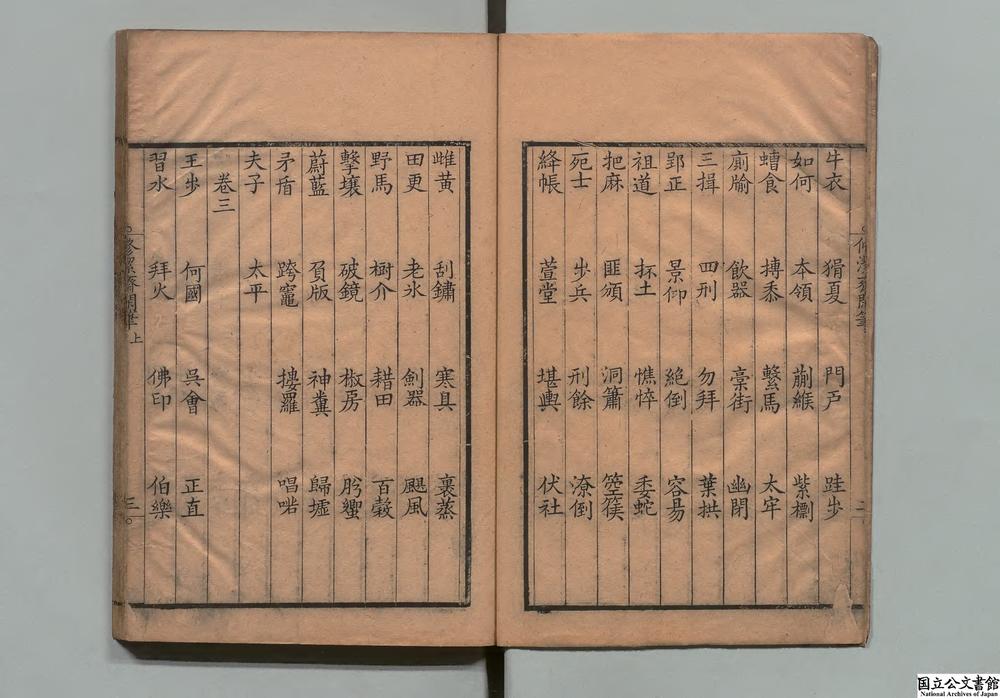 牛衣 狷夏 門戶 跬步
如何 本領 蒯緱 紫標
蝤食 搏黍 繫馬 太牢
廁牏 飲器 藁街 幽閉
三揖 四刑 勿拜 葉拱
郢正 景仰 絶倒 容易
祖道 抔土 憔悴 委蛇
把麻 匪頒 洞簫 箜篌
宛士 步兵 刑餘 潦倒
絳帳 萱堂 堪輿 伏社
雌黃 刮鏽 寒具 裹蒸
田更 老氷 劍器 颶風
野馬 樹介 耤田 百穀
擊壤 破鏡 椒房 肸蠁
蔚藍 負版 神糞 歸墟
矛盾 跨竈 摟羅 唱喏
夫子 太平
卷三
王步 何國 吳會 正直
習水 拜火 佛印 伯樂
上
三
国立公文書館
National Archives of Japan